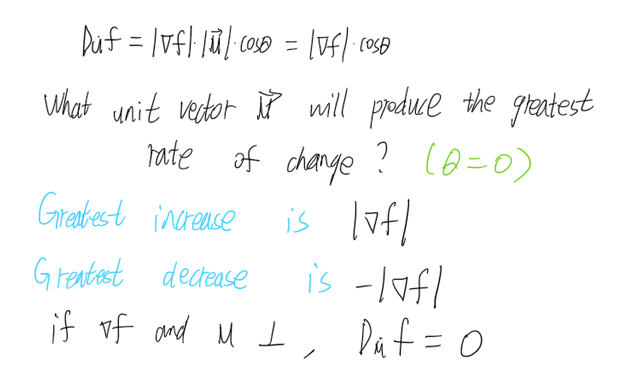 Du⃗f = |∇f|·|u⃗|·cosθ = |∇f|·cosθ
What unit vector u⃗ will produce the greatest
rate of change? (θ=0)
Greatest increase is |∇f|
Greatest decrease is -|∇f|
if ∇f and u ⊥, Du⃗f = 0